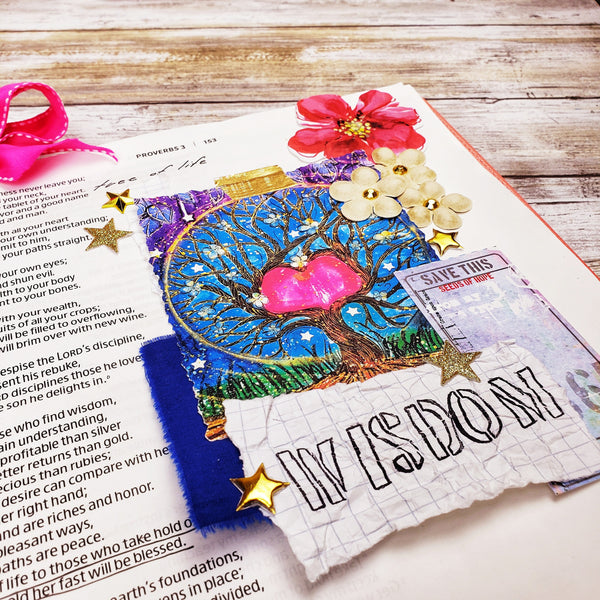 PROVERBS 3 | 153
tree of life
ness never leave you;
your neck,
tablet of your heart.
vor and a good name
d and man.
th all your heart
our own understanding;
mit to him,
your paths straight.
your own eyes;
and shun evil.
alth to your body
nt to your bones.
with your wealth,
uits of all your crops;
will be filled to overflowing,
will brim over with new wine.
espise the LORD's discipline,
sent his rebuke,
D disciplines those he love
e son he delights in.
se who find wisdom,
ain understanding,
profitable than silver
etter returns than gold.
ecious than rubies;
desire can compare with he
er right hand;
nd are riches and honor.
pleasant ways,
paths are peace.
of life to those who take hold o
old her fast will be blessed.
earth's foundations,
ens in place;
divided,
SAVE THIS
SEEDS OF HOPE
WISDOM